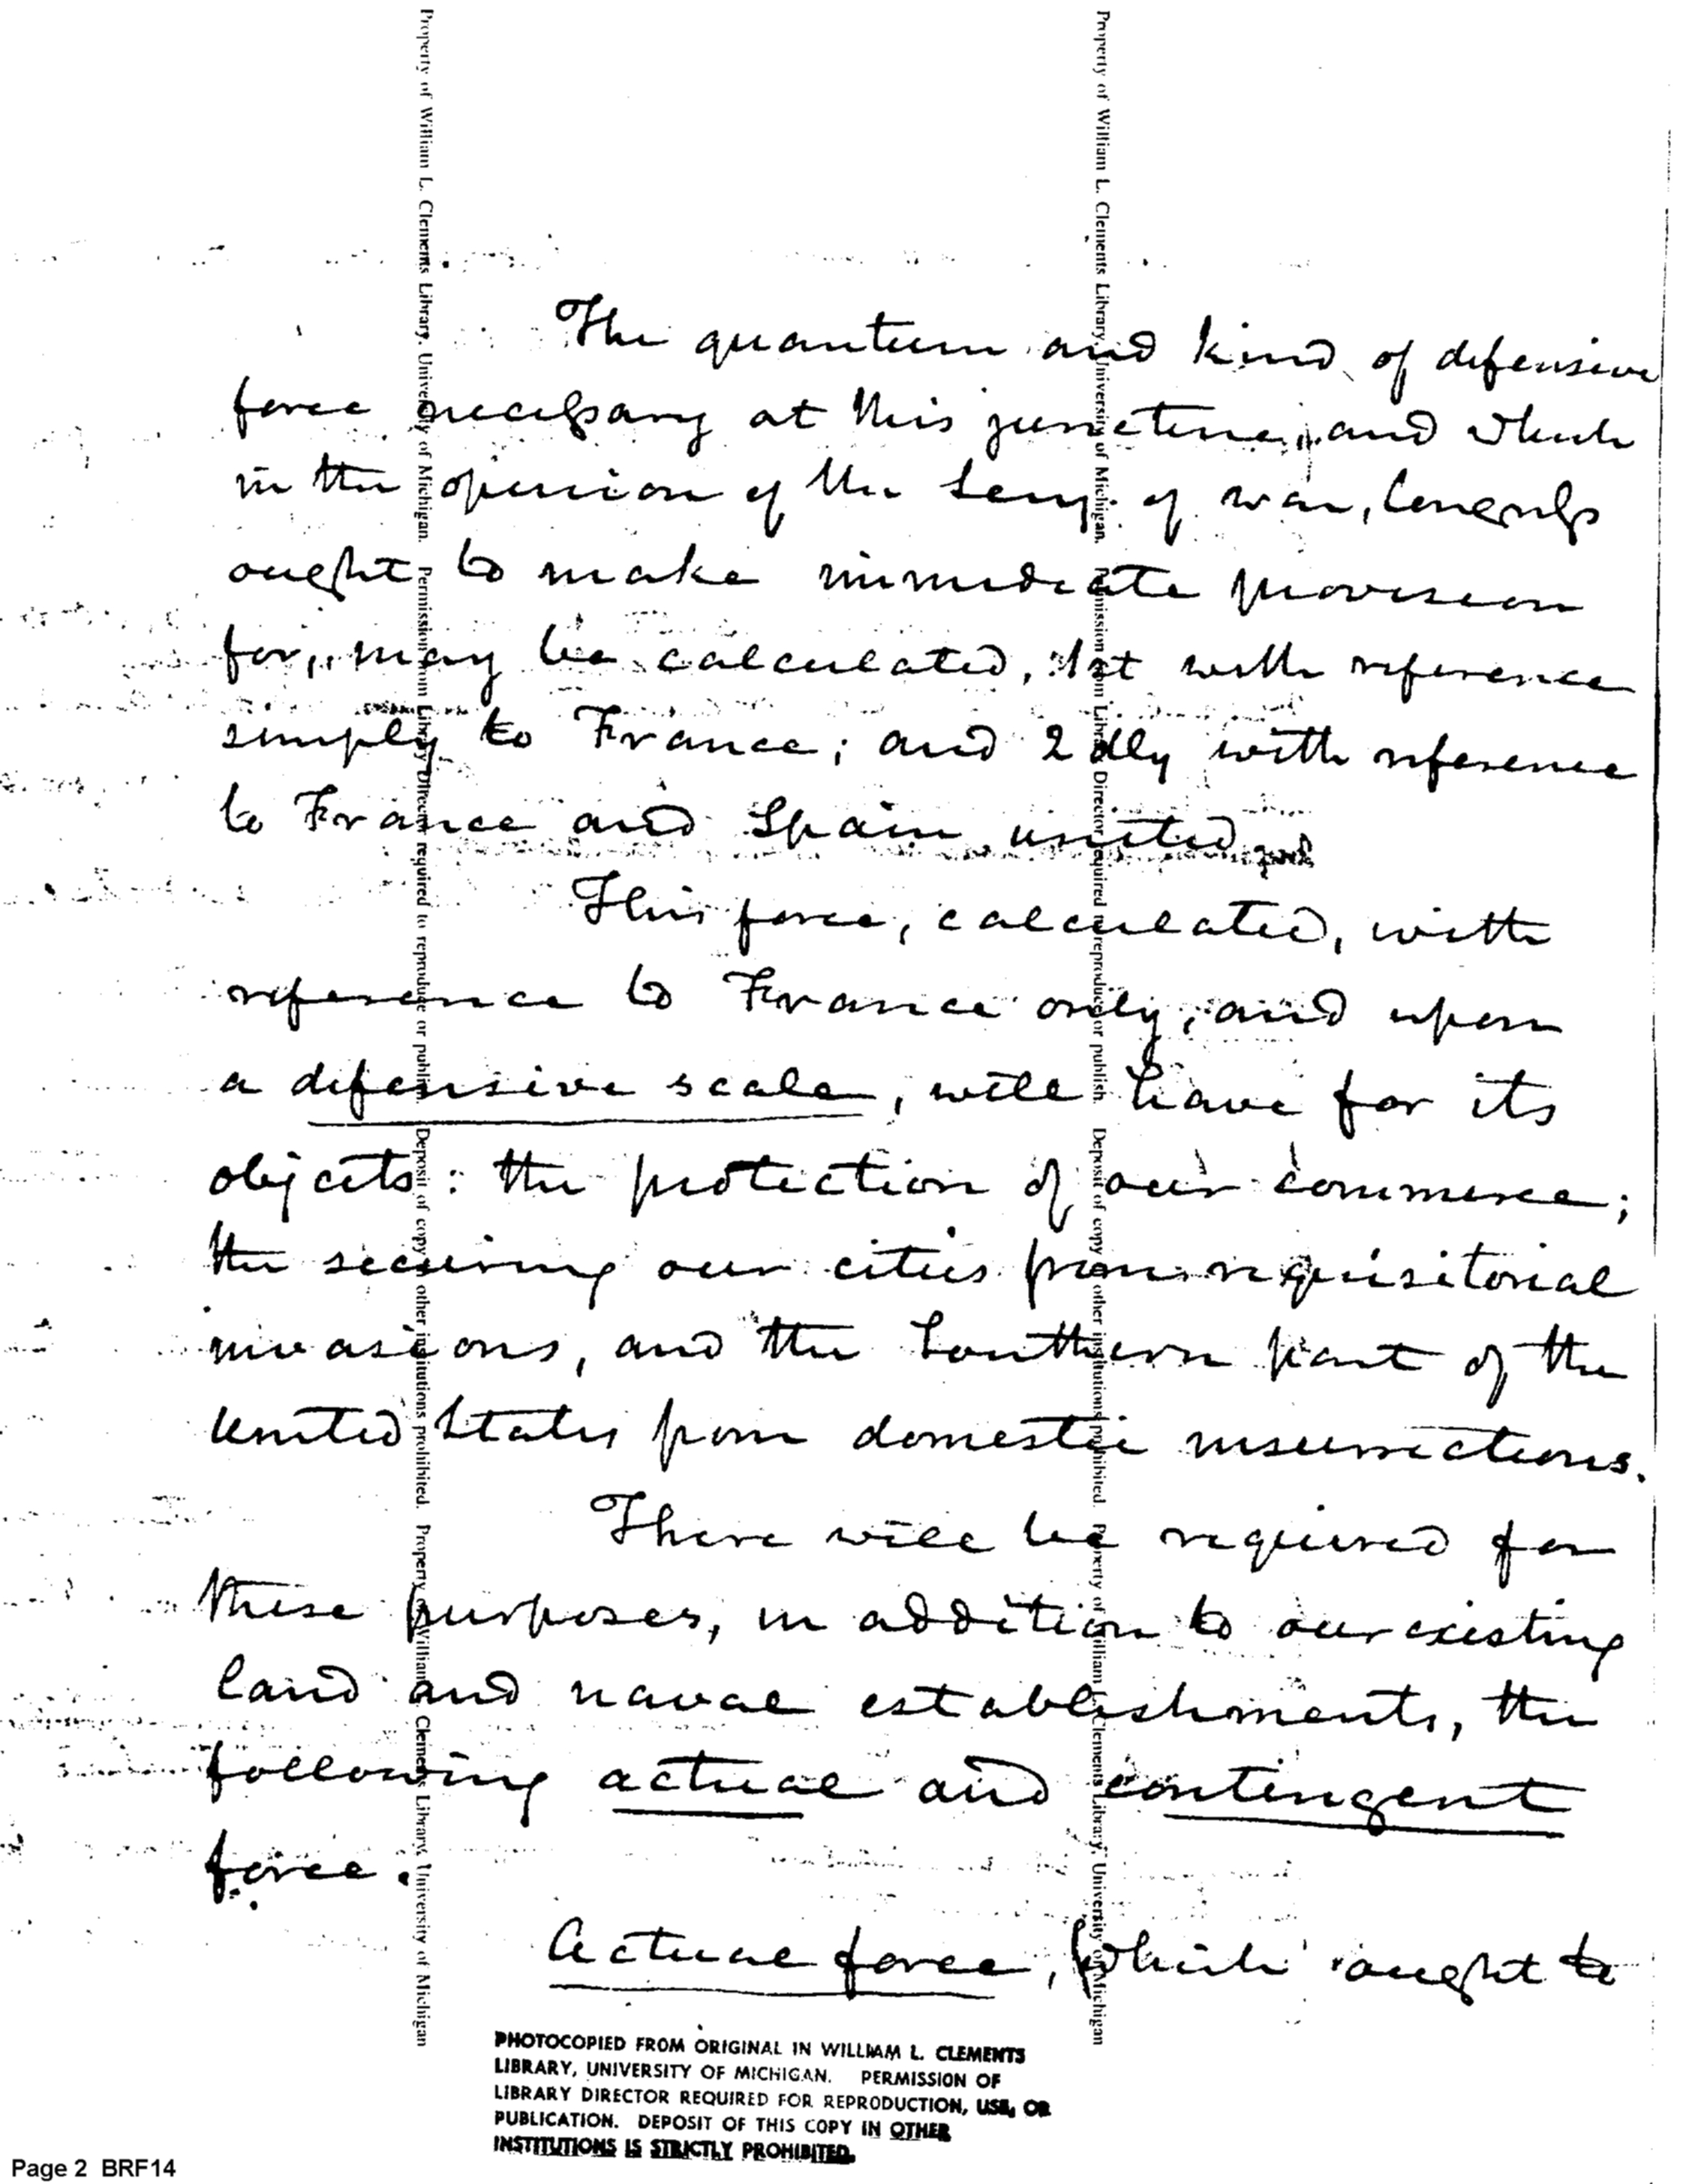 The quantum and kind of defensive
force necessary at this juncture, and which
in the opinion of the Secy. of war, Congress
ought to make immediate provision
for, may be calculated, 1st with reference
simply to France; and 2dly with reference
to France and Spain united.
This force, calculated, with
reference to France only, and upon
a defensive scale, will have for its
objects: the protection of our commerce;
the securing our cities from requisitorial
invasions, and the Southern part of the
United States from domestic insurrections.
There will be required for
these purposes, in addition to our existing
land and naval establishments, the
following actual and contingent
force.
Actual force, (which ought to
PHOTOCOPIED FROM ORIGINAL IN WILLIAM L. CLEMENTS
LIBRARY, UNIVERSITY OF MICHIGAN. PERMISSION OF
LIBRARY DIRECTOR REQUIRED FOR REPRODUCTION, USE, OR
PUBLICATION. DEPOSIT OF THIS COPY IN OTHER
INSTITUTIONS IS STRICTLY PROHIBITED.
Page 2 BRF14
Property of William L. Clements Library, University of Michigan. Permission from Library Director required to reproduce or publish. Deposit of copy other institutions prohibited. Property of William L. Clements Library, University of Michigan
Property of William L. Clements Library, University of Michigan. Permission from Library Director required to reproduce or publish. Deposit of copy other institutions prohibited. Property of William L. Clements Library, University of Michigan